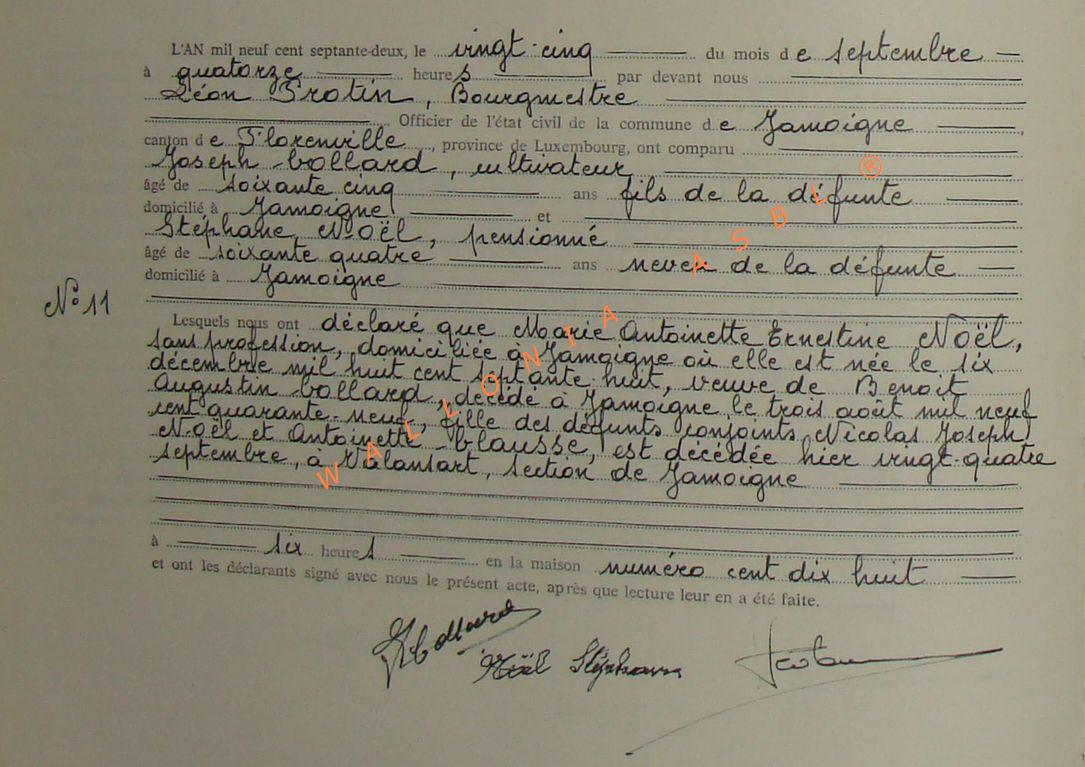 L'AN mil neuf cent septante-deux, le vingt-cinq du mois de septembre
à quatorze heures par devant nous
Léon Protin, Bourgmestre
Officier de l'état civil de la commune de Jamoigne,
canton de Florenville, province de Luxembourg, ont comparu
Joseph Collard, cultivateur
âgé de soixante cinq ans fils de la défunte
domicilié à Jamoigne et
Stéphane Noël, pensionné
âgé de soixante quatre ans neveu de la défunte
domicilié à Jamoigne
N° 11
Lesquels nous ont déclaré que Marie Antoinette Ernestine Noël,
sans profession, domiciliée à Jamoigne où elle est née le six
décembre mil huit cent septante-huit, veuve de Benoit
Augustin Collard, décédé à Jamoigne le trois août mil neuf
cent quarante-neuf, fille des défunts conjoints Nicolas Joseph
Noël et Antoinette Clausse, est décédée hier vingt-quatre
septembre, à Valansart, section de Jamoigne
à six heures en la maison numéro cent dix huit
et ont les déclarants signé avec nous le présent acte, après que lecture leur en a été faite.
Collard
Noël Stéphane
WALLONIA ASBL ®